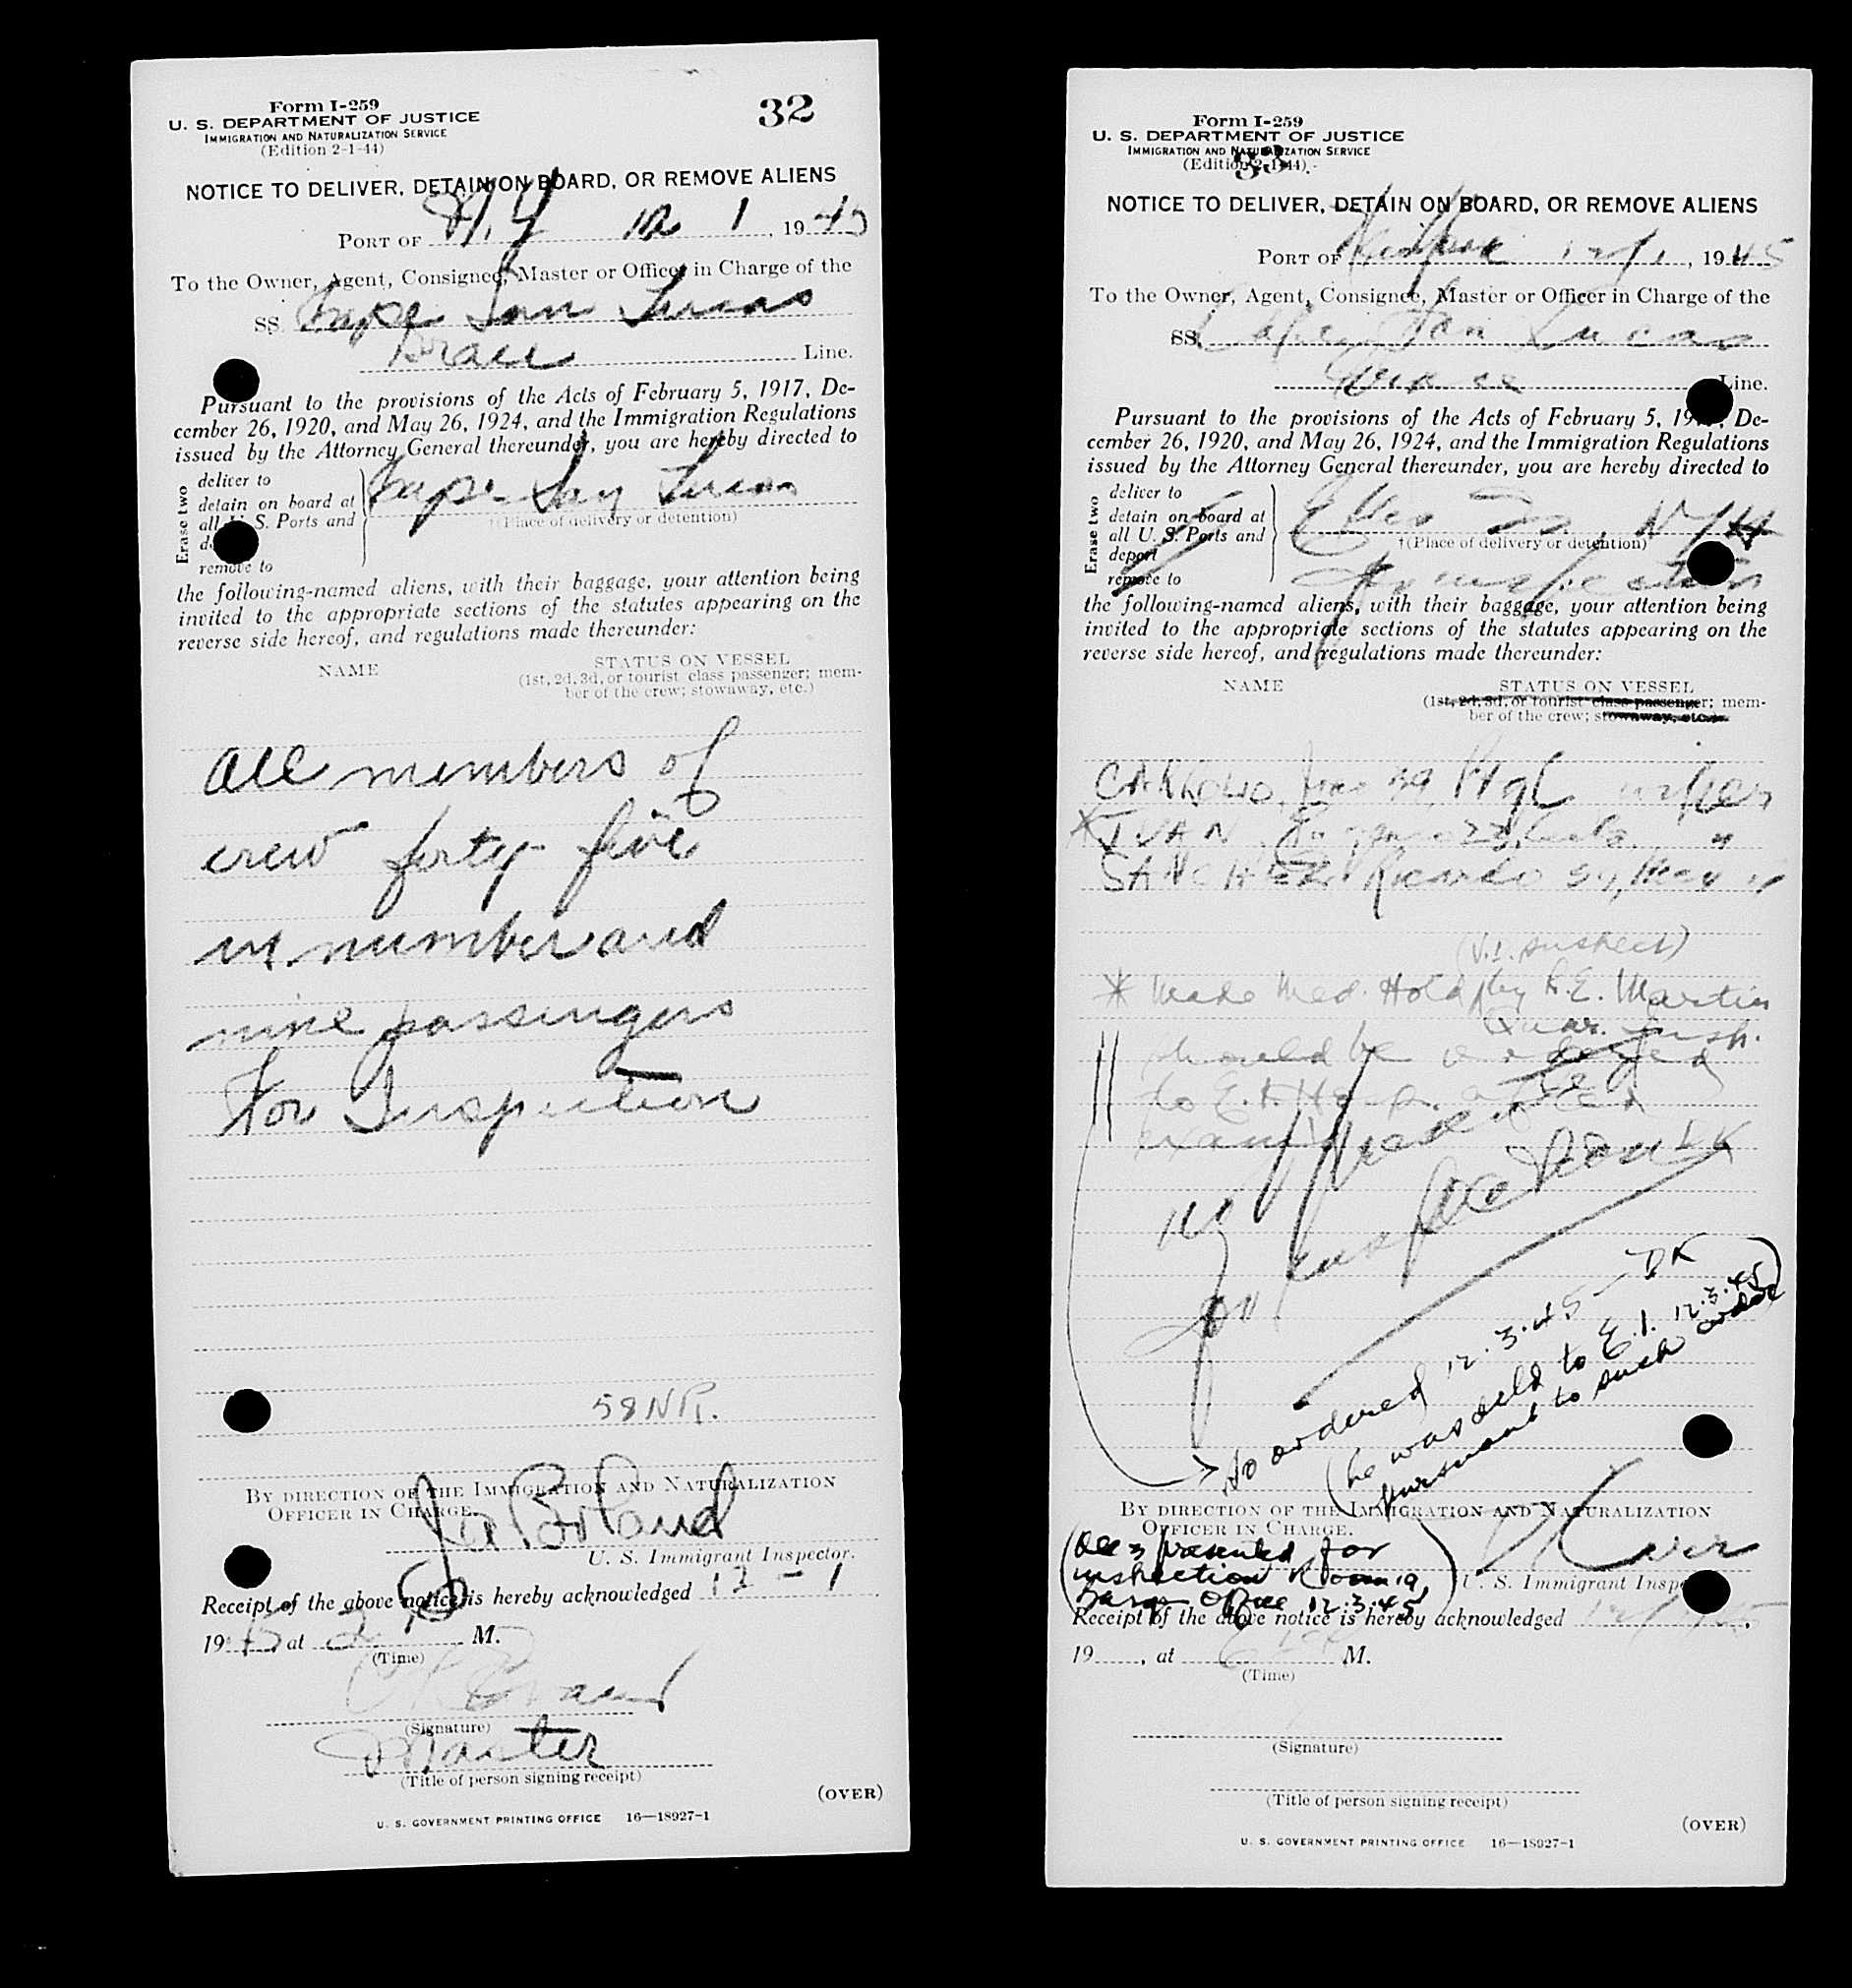 Form I-259
U. S. DEPARTMENT OF JUSTICE
IMMIGRATION AND NATURALIZATION SERVICE
(Edition 2-1-44)
32
NOTICE TO DELIVER, DETAIN ON BOARD, OR REMOVE ALIENS
PORT OF N.Y 12 1, 1945
To the Owner, Agent, Consignee, Master or Officer in Charge of the
SS Cape San Lucas
Grace Line.
Pursuant to the provisions of the Acts of February 5, 1917, De-
cember 26, 1920, and May 26, 1924, and the Immigration Regulations
issued by the Attorney General thereunder, you are hereby directed to
Erase two
deliver to
detain on board at
all U. S. Ports and
remove to
Cape San Lucas
†(Place of delivery or detention)
the following-named aliens, with their baggage, your attention being
invited to the appropriate sections of the statutes appearing on the
reverse side hereof, and regulations made thereunder:
NAME
STATUS ON VESSEL
(1st, 2d, 3d, or tourist class passenger; mem-
ber of the crew; stowaway, etc.)
All members of
crew forty-five
in number and
nine passengers
For Inspection
58 NR.
BY DIRECTION OF THE IMMIGRATION AND NATURALIZATION
OFFICER IN CHARGE.
U. S. Immigrant Inspector.
Receipt of the above notice is hereby acknowledged 12 - 1
1945, at 2 M.
(Time)
(Signature)
Master
(Title of person signing receipt)
(OVER)
U. S. GOVERNMENT PRINTING OFFICE 16—18927-1
Form I-259
U. S. DEPARTMENT OF JUSTICE
IMMIGRATION AND NATURALIZATION SERVICE
(Edition 2-1-44)
33
NOTICE TO DELIVER, DETAIN ON BOARD, OR REMOVE ALIENS
PORT OF New York 12/1, 1945
To the Owner, Agent, Consignee, Master or Officer in Charge of the
SS Cape San Lucas
Grace Line.
Pursuant to the provisions of the Acts of February 5, 1917, De-
cember 26, 1920, and May 26, 1924, and the Immigration Regulations
issued by the Attorney General thereunder, you are hereby directed to
Erase two
deliver to
detain on board at
all U. S. Ports and
deport
remove to
Ellis Is. N.Y.H
†(Place of delivery or detention)
for inspection
the following-named aliens, with their baggage, your attention being
invited to the appropriate sections of the statutes appearing on the
reverse side hereof, and regulations made thereunder:
NAME
STATUS ON VESSEL
(1st, 2d, 3d, or tourist class passenger; mem-
ber of the crew; stowaway, etc.)
39, Ptgl
*JUAN 23, Cuba "
SANCHEZ Ricardo Mex "
(V.D. suspect)
* Made Med. Hold by R.E. Martin
Quar. Insp.
should be ordered
to E.I. Hosp. after
exam
inspection DK
so ordered 12.3.45 — DK
(he was deld to E.I. 12.3.45)
pursuant to such order
BY DIRECTION OF THE IMMIGRATION AND NATURALIZATION
OFFICER IN CHARGE.
(All 3 presented for
inspection Room 19,
Barge Office 12.3.45)
U. S. Immigrant Inspe
Receipt of the above notice is hereby acknowledged
19, at 6 M.
(Time)
(Signature)
(Title of person signing receipt)
(OVER)
U. S. GOVERNMENT PRINTING OFFICE 16—18927-1